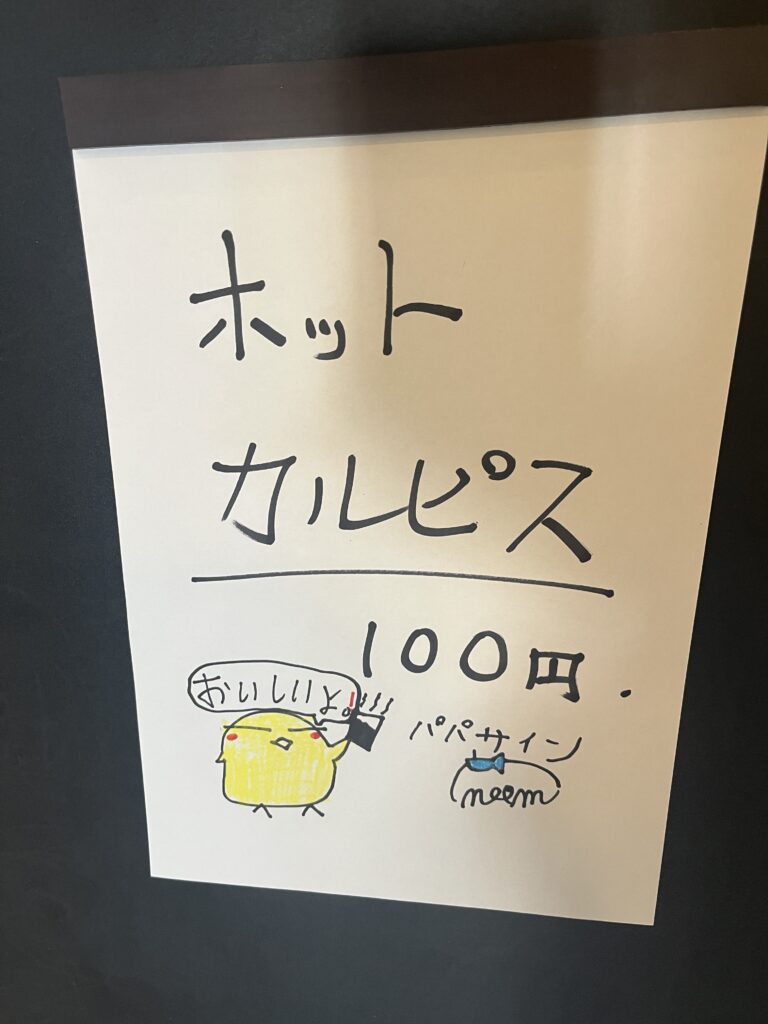 ホット
カルピス
100円.
おいしいよ!
パパサイン
neem